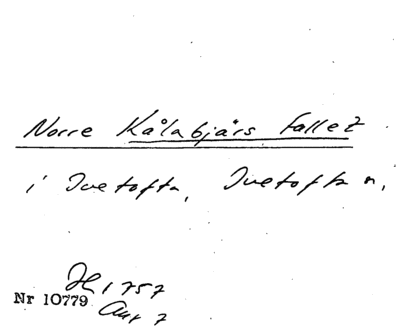 Norre Kålabjärs fallet
i Ivetofta, Ivetofta n,
JH 1757
Nr 10779